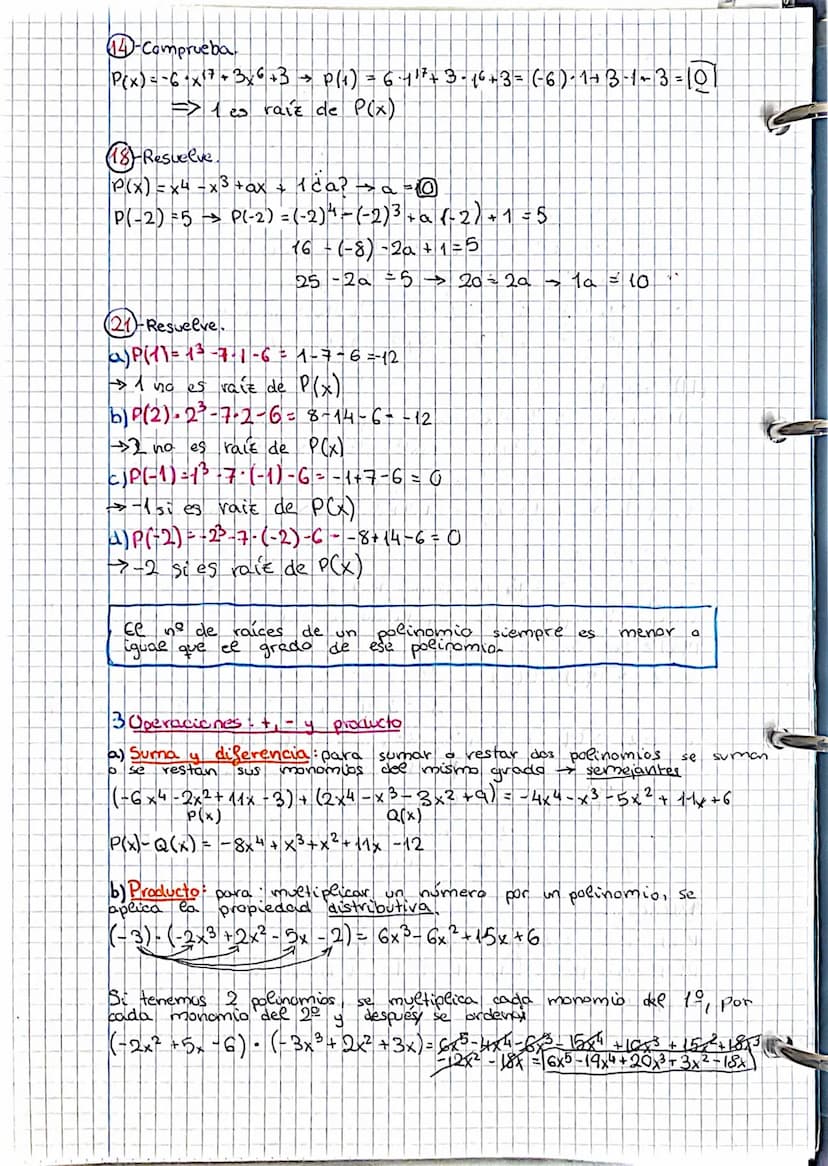 14-Comprueba.
P(x) = -6·x¹⁷ + 3x⁶ + 3 → P(1) = 6·1¹⁷ + 3·1⁶ + 3 = (-6)·1 + 3·1 + 3 = 0
⇒ 1 es raíz de P(x)
18-Resuelve.
P(x) = x⁴ - x³ + ax + 1 ¿a? → a = 10
P(-2) = 5 → P(-2) = (-2)⁴ - (-2)³ + a (-2) + 1 = 5
16 - (-8) - 2a + 1 = 5
25 - 2a = 5 → 20 = 2a → 1a = 10
21-Resuelve.
a) P(1) = 1³ - 7·1 - 6 = 1 - 7 - 6 = -12
→ 1 no es raíz de P(x)
b) P(2) = 2³ - 7·2 - 6 = 8 - 14 - 6 = -12
→ 2 no es raíz de P(x)
c) P(-1) = 1³ - 7·(-1) - 6 = -1 + 7 - 6 = 0
→ -1 si es raiz de P(x)
d) P(-2) = -2³ - 7·(-2) - 6 = -8 + 14 - 6 = 0
→ -2 si es raíz de P(x)
El nº de raíces de un polinomio siempre es menor o
igual que el grado de ese polinomio.
3 Operaciones: +, - y producto
a) Suma y diferencia: para sumar o restar dos polinomios se suman
o se restan sus monomios del mismo grado → semejantes
(-6x⁴ - 2x² + 11x - 3) + (2x⁴ - x³ - 3x² + 9) = -4x⁴ - x³ - 5x² + 11x + 6
P(x) Q(x)
P(x) - Q(x) = -8x⁴ + x³ + x² + 11x - 12
b) Producto: para multiplicar un número por un polinomio, se
aplica la propiedad distributiva.
(-3)·(-2x³ + 2x² - 5x - 2) = 6x³ - 6x² + 15x + 6
Si tenemos 2 polinomios, se multiplica cada monomio del 1º, por
cada monomio del 2º y después se ordena
(-2x² + 5x - 6) · (-3x³ + 2x² + 3x) = 6x⁵ - 4x⁴ - 6x³ - 15x⁴ + 10x³ + 15x² + 18x³
- 12x² - 18x = 6x⁵ - 19x⁴ + 20x³ + 3x² - 18x